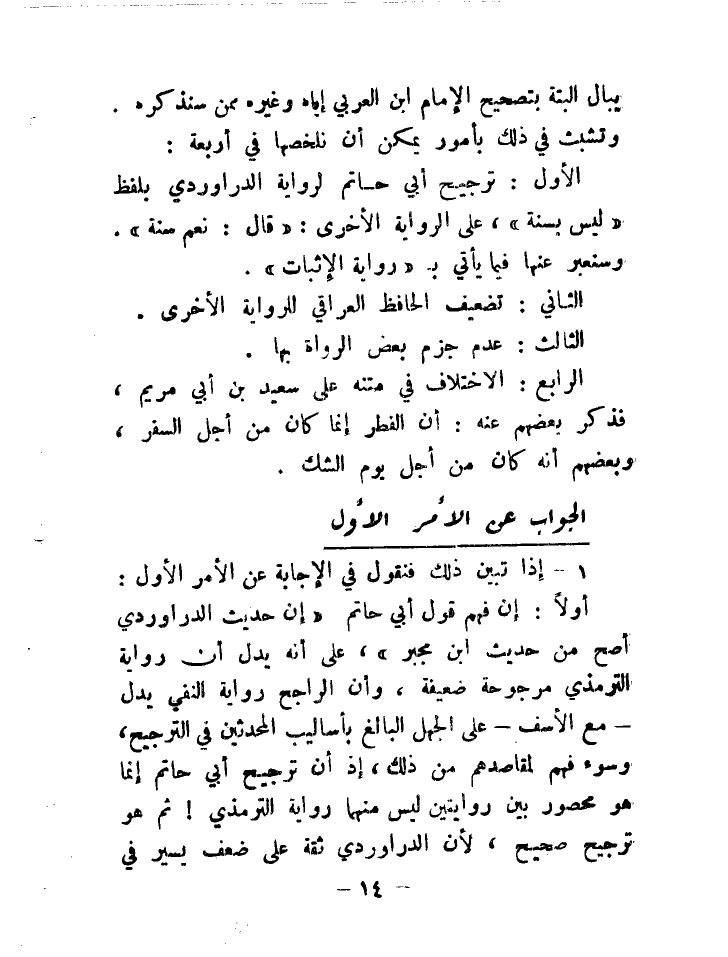 يبال البتة بتصحيح الإمام ابن العربي إياه وغيره ممن سنذكره .
وتشبث في ذلك بأمور يمكن أن نلخصها في أربعة :
الأول : ترجيح أبي حاتم لرواية الدراوردي بلفظ
« ليس بسنة » ، على الرواية الأخرى : « قال : نعم سنة » .
وسنعبر عنها فيما يأتي بـ « رواية الإثبات » .
الثاني : تضعيف الحافظ العراقي للرواية الأخرى .
الثالث : عدم جزم بعض الرواة بها .
الرابع : الاختلاف في متنه على سعيد بن أبي مريم ،
فذكر بعضهم عنه : أن الفطر إنما كان من أجل السفر ،
وبعضهم أنه كان من أجل يوم الشك .
الجواب عن الأمر الأول
١ - إذا تبين ذلك فنقول في الإجابة عن الأمر الأول :
أولاً : إن فهم قول أبي حاتم « إن حديث الدراوردي
أصح من حديث ابن مجبر » ، على أنه يدل أن رواية
الترمذي مرجوحة ضعيفة ، وأن الراجح رواية النفي يدل
- مع الأسف - على الجهل البالغ بأساليب المحدثين في الترجيح ،
وسوء فهم لمقاصدهم من ذلك ، إذ أن ترجيح أبي حاتم إنما
هو محصور بين روايتين ليس منها رواية الترمذي ! ثم هو
ترجيح صحيح ، لأن الدراوردي ثقة على ضعف يسير في
- ١٤ -